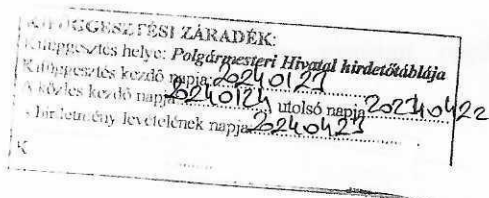 KIFÜGGESZTÉSI ZÁRADÉK:
Kifüggesztés helye: Polgármesteri Hivatal hirdetőtáblája
Kifüggesztés kezdő napja: 20240123
A közlés kezdő napja 20240124 utolsó napja 20240422
hirdetmény levételének napja 20240423
K